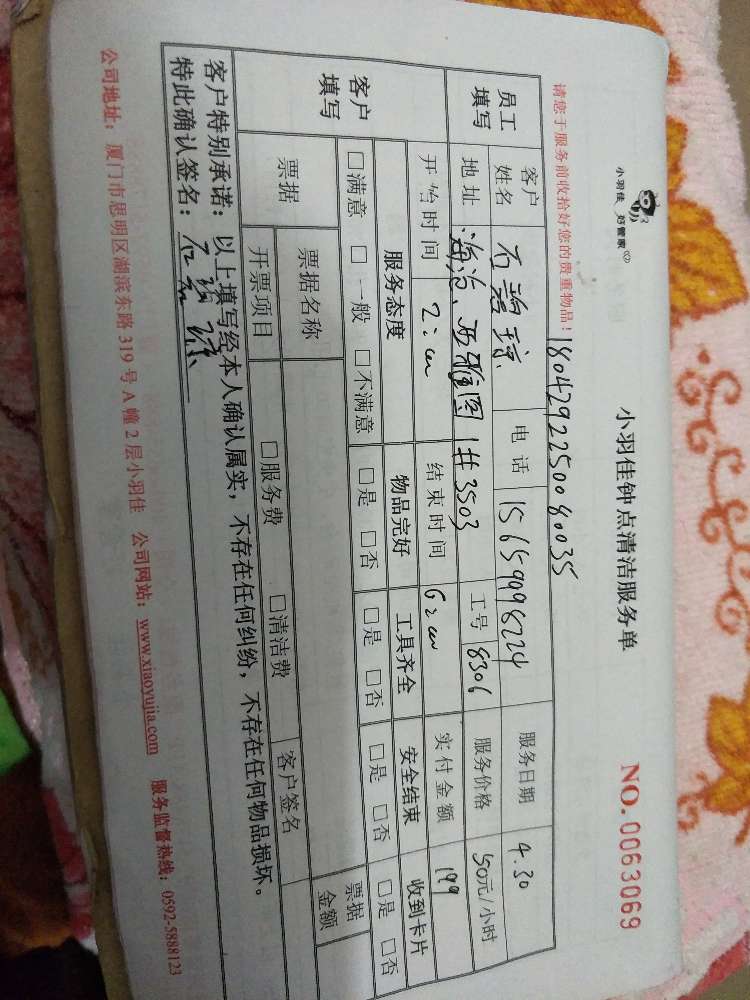 小羽佳 好管家
小羽佳钟点清洁服务单
NO. 0063069
请您于服务前收拾好您的贵重物品！
18042922500 80035
员工填写
客户姓名 石碧琼 电话 15659098224 服务日期 4.30
地址 海沧、亚雅图1#3503 工号 8306 服务价格 50元/小时
开始时间 2:00 结束时间 6:00 实付金额 199
客户填写
服务态度 物品完好 工具齐全 安全结束 收到卡片
□满意 □一般 □不满意 □是 □否 □是 □否 □是 □否 □是 □否
票据 票据名称 客户签名 票据金额
开票项目 □服务费 □清洁费
客户特别承诺：以上填写经本人确认属实，不存在任何纠纷，不存在任何物品损坏。
特此确认签名：
公司地址：厦门市思明区湖滨东路319号A幢2层小羽佳 公司网站：www.xiaoyujia.com 服务监督热线：0592-5888123